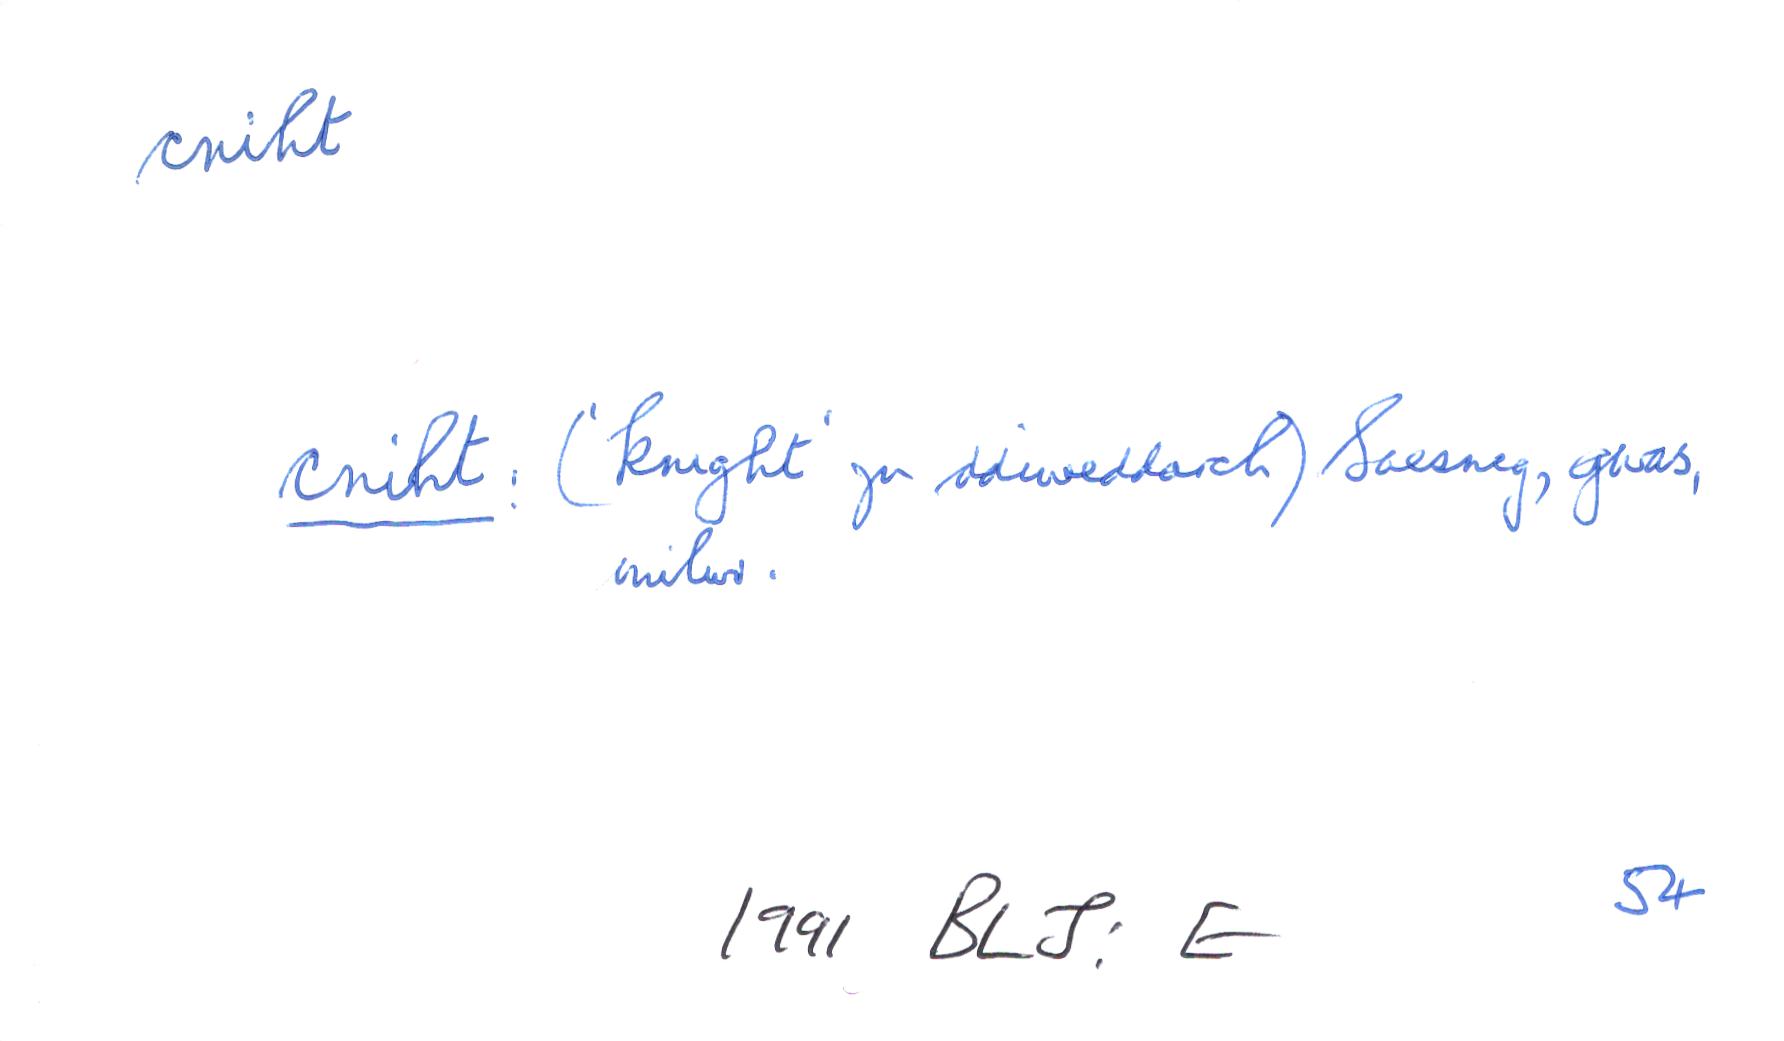 cniht
cniht: ('knight' yn ddiweddarach) Saesneg, gwas,
milwr.
54
1991 BLJ: E